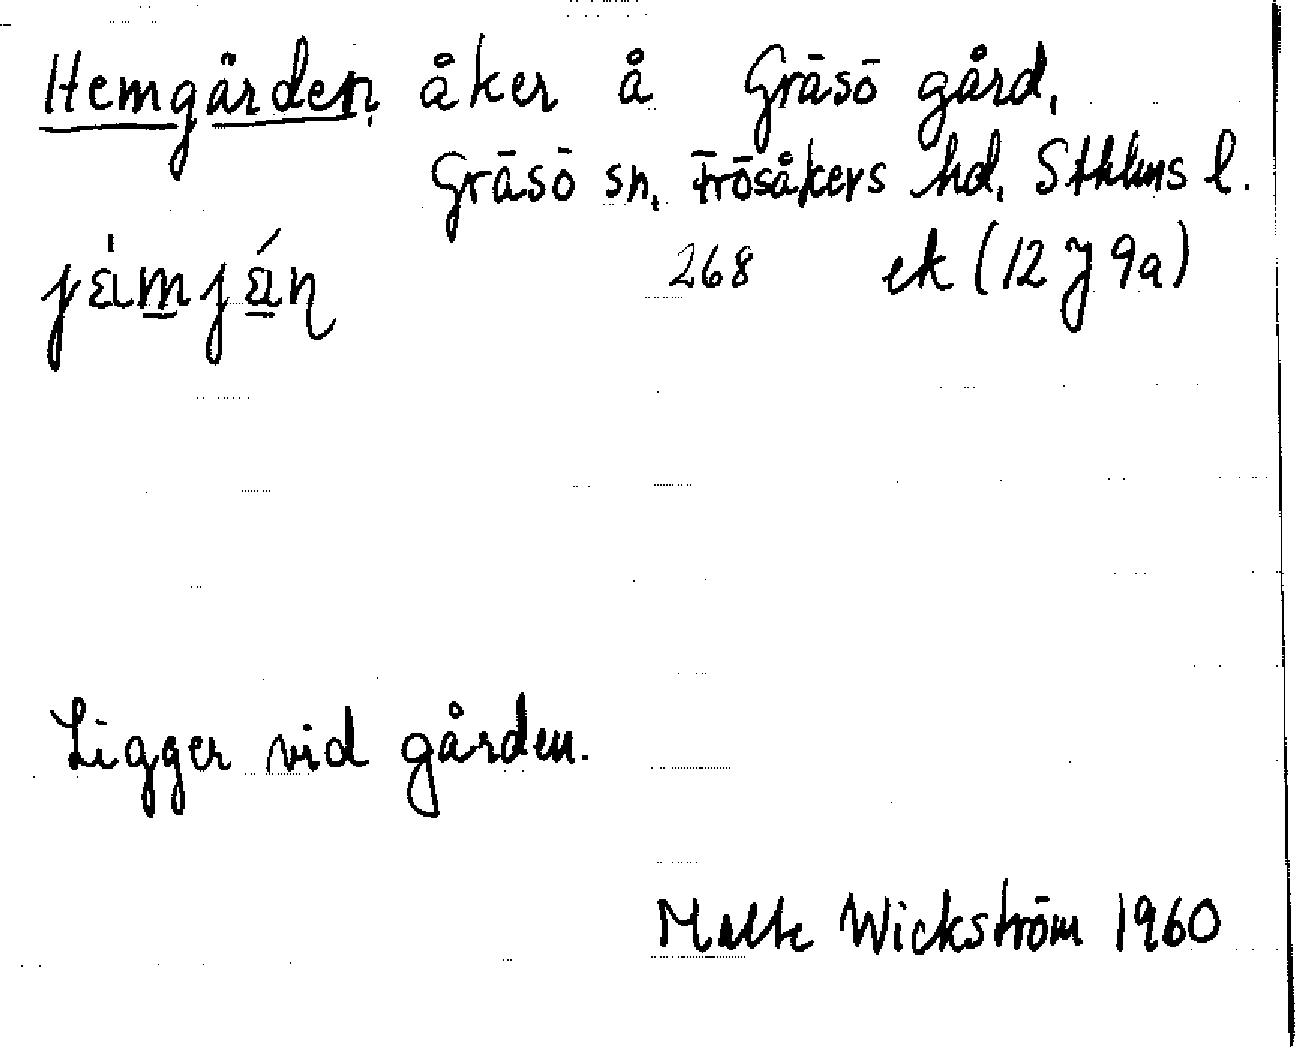 Hemgärden, åker å Gräsö gård,
Gräsö sn, Frösåkers hd, Sthlms l.
268 ek (12 J 9a)
Ligger vid gården.
Malte Wickström 1960